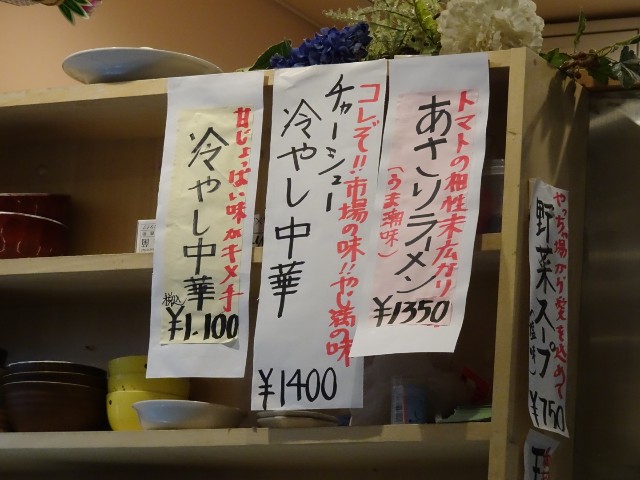 甘じょっぱい味がキメ手
冷やし中華
税込
¥1,100
コレぞ!!市場の味!!やじ満の味
チャーシュー
冷やし中華
¥1400
トマトの相性末広がり
あさりラーメン
(うま潮味)
¥1350
野菜スープ
¥750